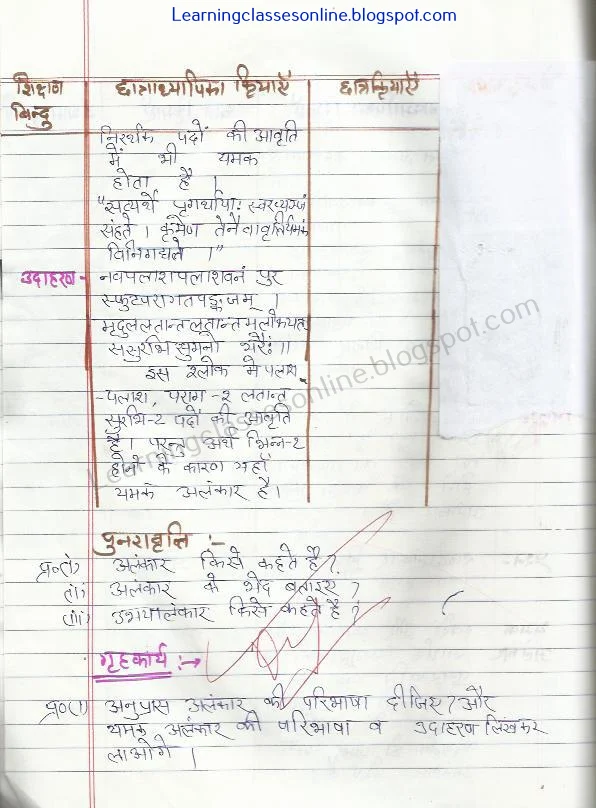 Learningclassesonline.blogspot.com
शिक्षण बिन्दु
छात्राध्यापिका क्रियाएँ
छात्रक्रियाएँ
निरर्थक पदों की आवृति
में भी यमक
होता है ।
"सत्यर्थे पृगर्थायाः स्वरव्यञ्जं
संहते । क्रमेण तेनैवावृत्तिर्यमकं
विनिगद्यते ।"
उदाहरण - नवपलाशपलाशवनं पुर
स्फुटपरागतपङ्कजम् ।
मृदुललतान्तलतान्तमलोकयत्
ससुरभि सुमनो भरैः॥
इस श्लोक मे पलाश
-पलाश, पराग -२ लतान्त
सुरभि-2 पदों की आवृति
है। परन्तु अर्थ भिन्न-2
होने के कारण यहाँ
यमक अलंकार है।
Learningclassesonline.blogspot.com
पुनरावृत्ति :-
प्र०(i) अलंकार किसे कहते है?
(ii) अलंकार के भेद बताइए ?
(iii) उभयालंकार किसे कहते है ?
गृहकार्य :→
प्र०(1) अनुप्रास अलंकार की परिभाषा दीजिए? और
यमक अलंकार की परिभाषा व उदाहरण लिखकर
लाओगे ।